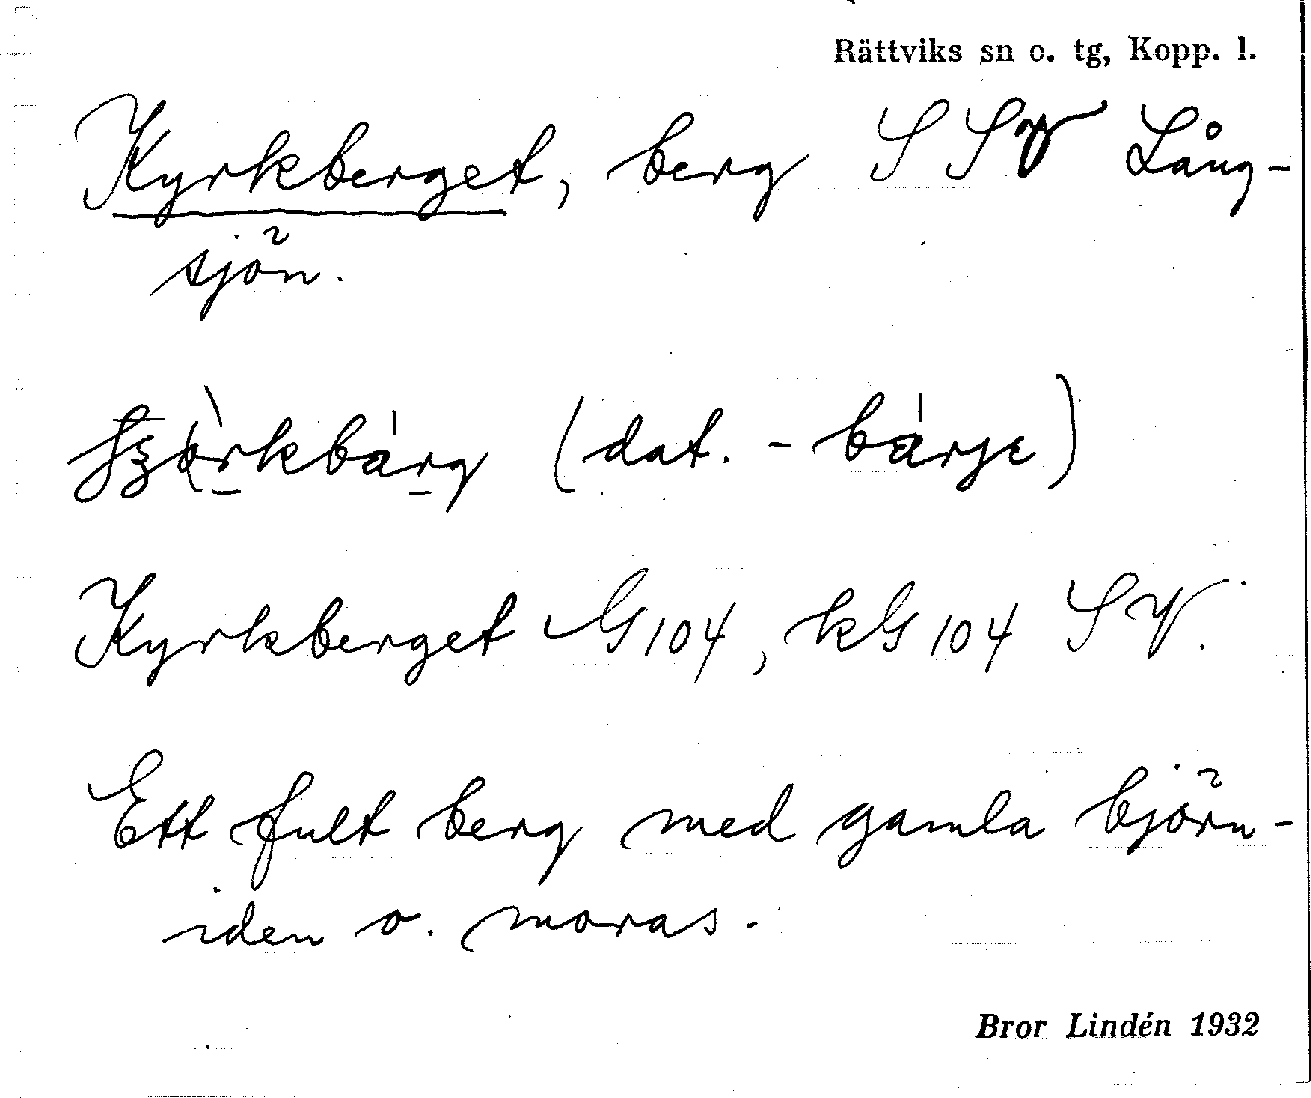 Rättviks sn o. tg, Kopp. l.
Kyrkberget, berg SSV Lång-
sjön.
(dat. - bárje)
Kyrkberget G104, kG 104 SV.
Ett fult berg med gamla björn-
iden o. moras.
Bror Lindén 1932